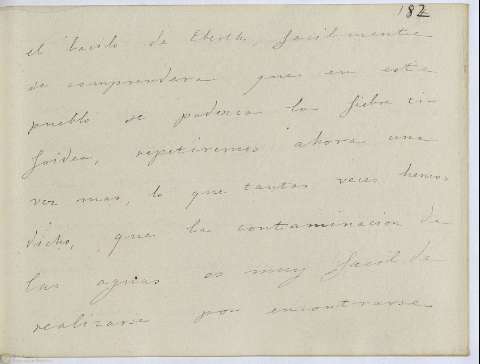 182
el bacilo de Eberth, facilmente
se comprendera que en este
pueblo se padezca la fiebre ti-
foidea, repetiremos ahora una
vez mas, lo que tantas veces hemos
dicho, que la contaminacion de
las aguas es muy facil de
realizarse por encontrarse